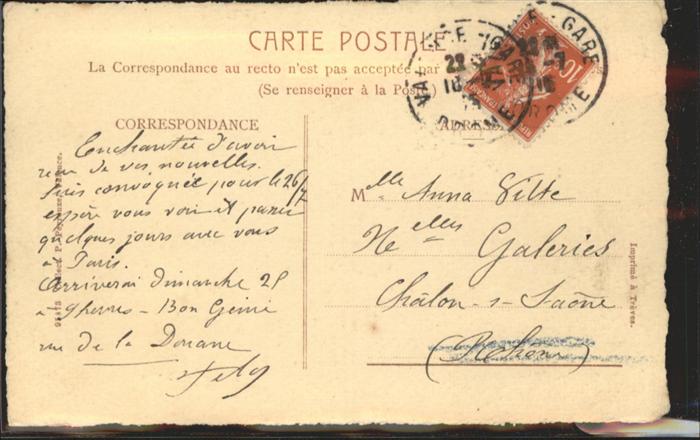 CARTE POSTALE
La Correspondance au recto n'est pas acceptée par
(Se renseigner à la Poste)
CORRESPONDANCE
ADRESSE
Enchantée d'avoir
reçu de vos nouvelles.
Suis convoquée pour le 26/7
espère vous voir et passer
quelques jours avec vous
à Paris.
Arriverai dimanche 25
à 9 heures - Bon Génie
rue de la Douane
Mlle Anna
Nelles Galeries
Châlon-s-Saône
(Rhône)
Imprimé à Trèves.
GARE
DROME
10